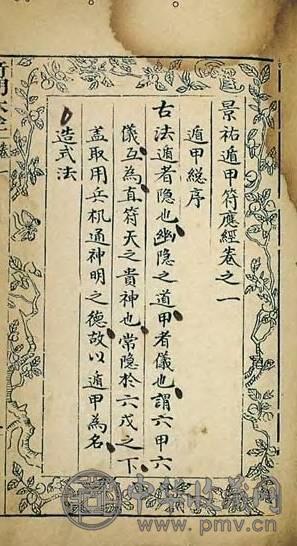 景祐遁甲符應經卷之一
遁甲縂序
古法遁者隐也幽隐之道甲者儀也謂六甲六
儀互為直符天之貴神也常隐於六戊之下
蓋取用兵机通神明之德故以遁甲為名
造式法
中华收藏网
www.pmv.cn